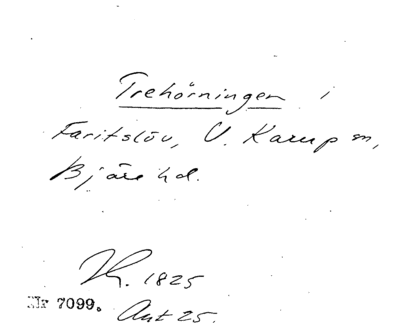 Trehörningen i
Faritslöv, V. Karup sn,
Bjäre hd.
Kr. 1825
Nr 7099. Avt 25.